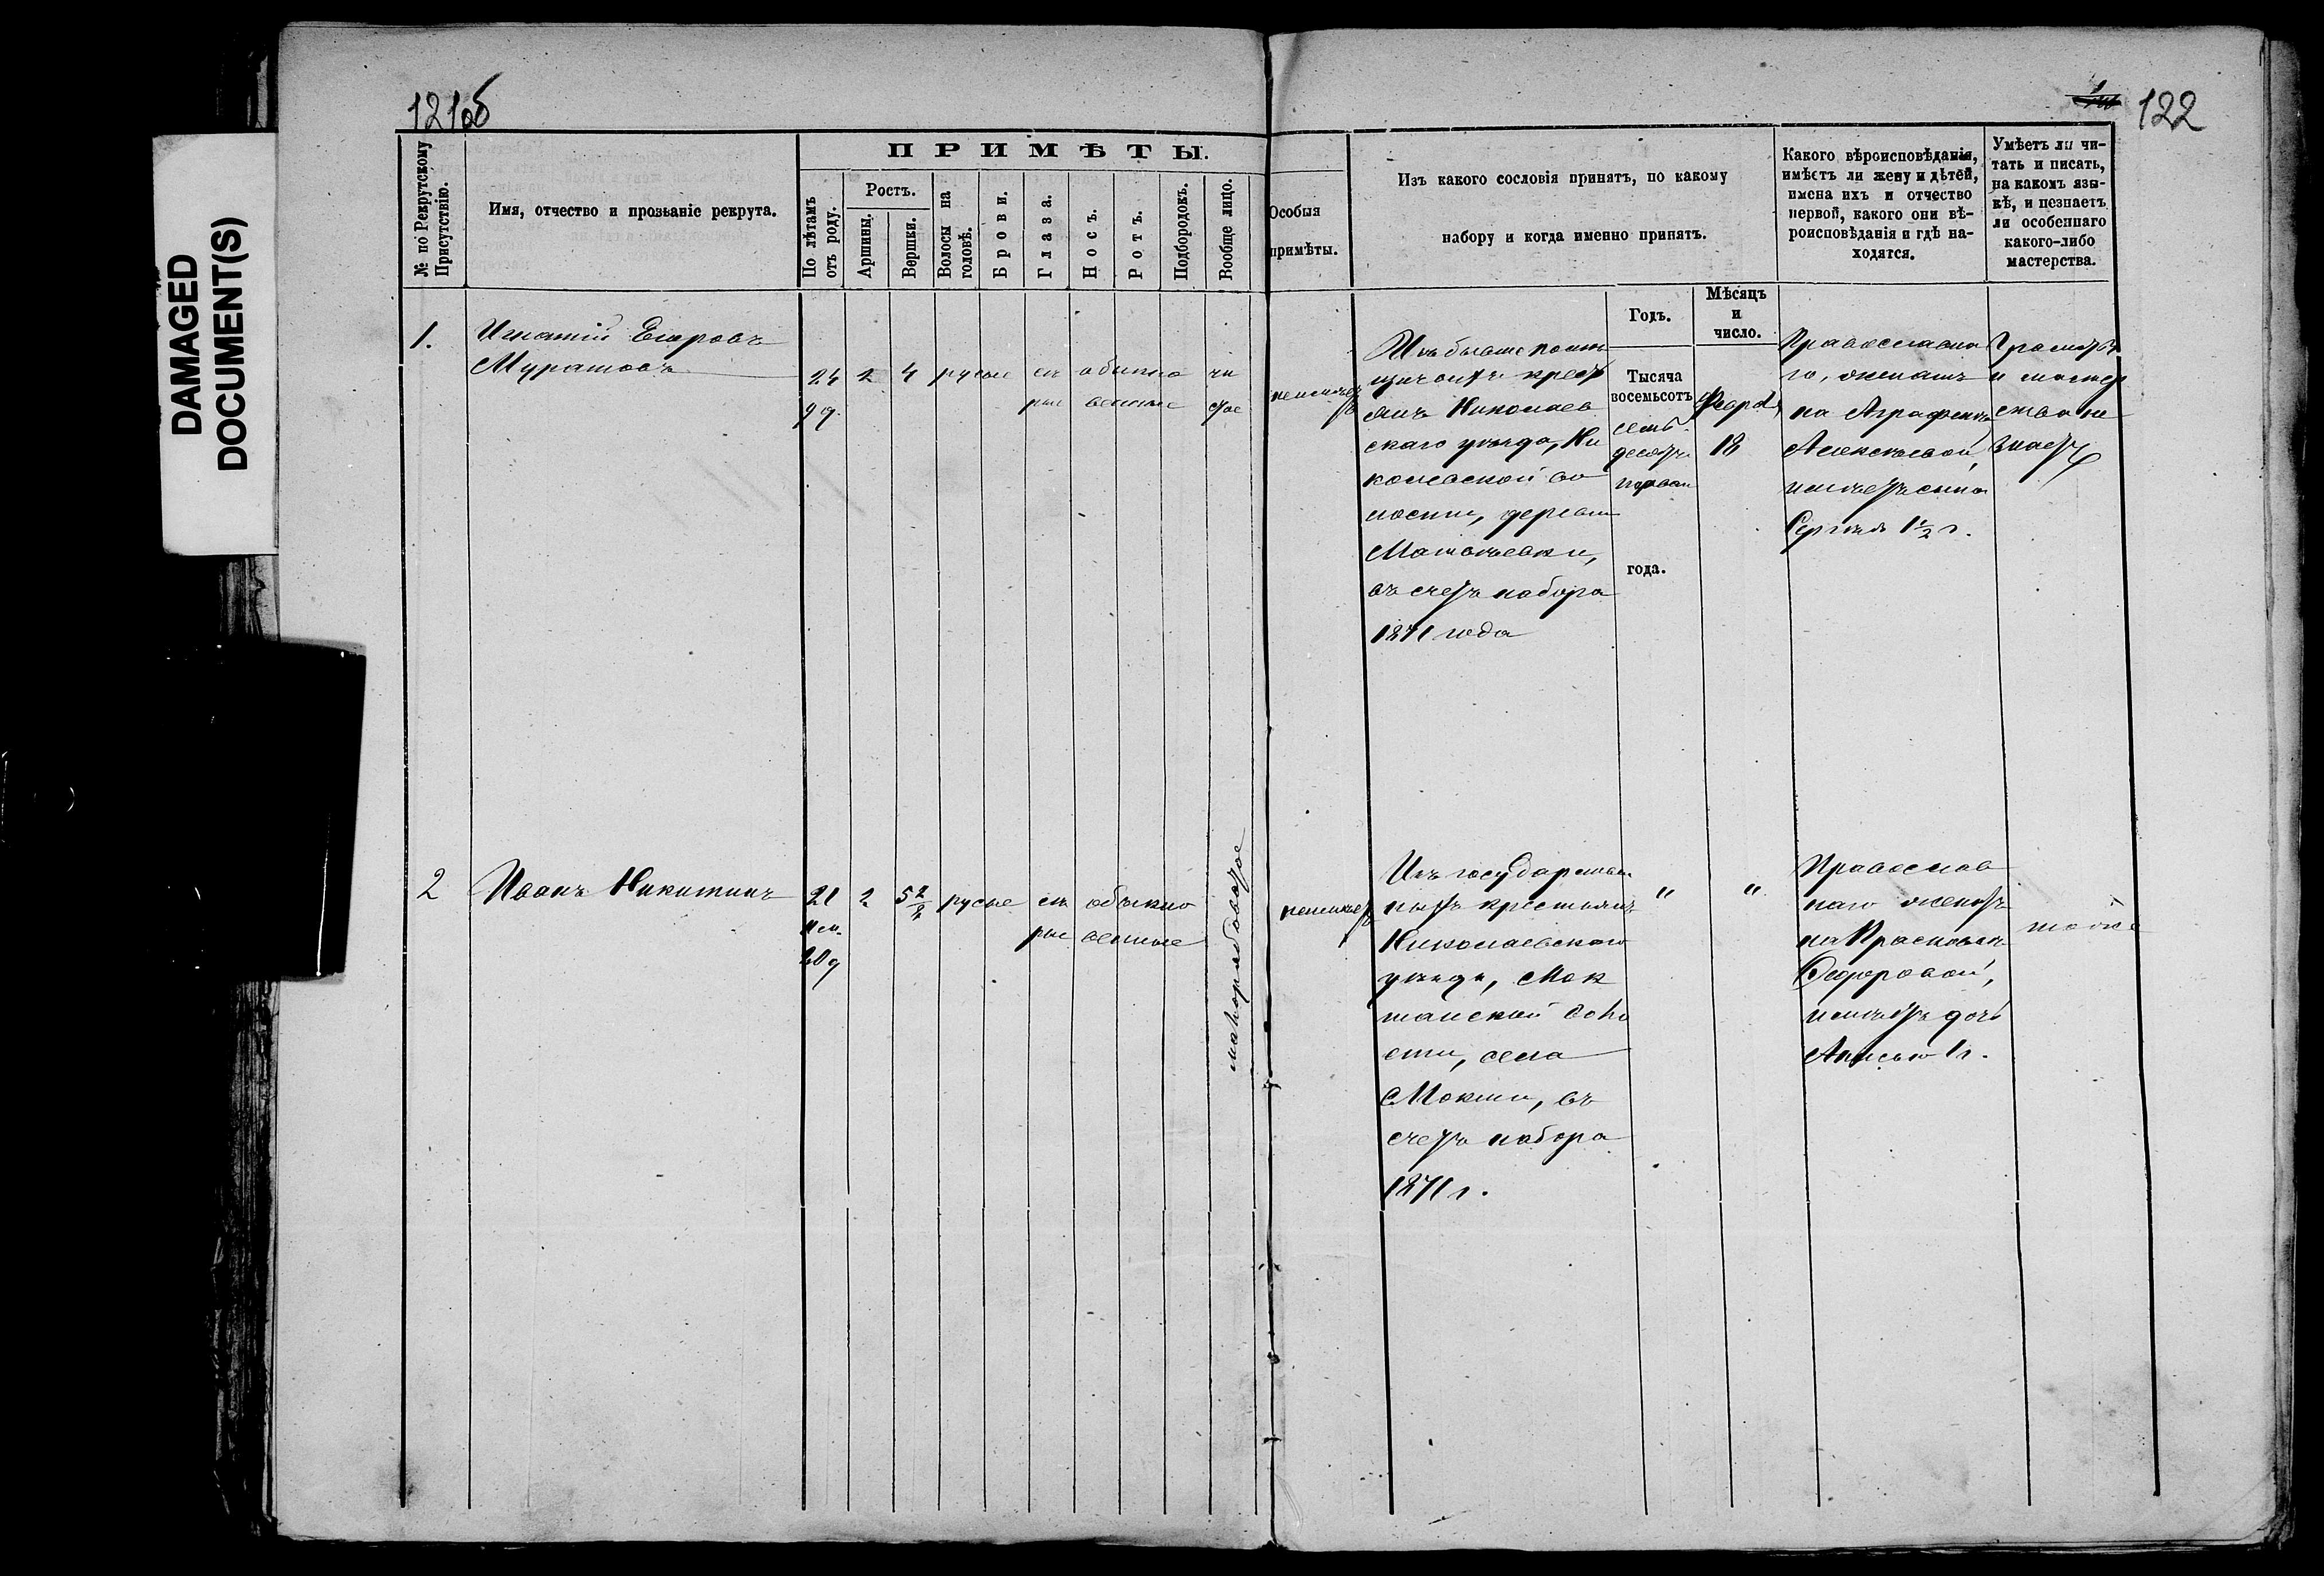 DAMAGED
DOCUMENT(S)
121об
122
№ по Рекрутскому Присутствію.
Имя, отчество и прозваніе рекрута.
ПРИМѢТЫ.
По лѣтамъ отъ роду.
Ростъ.
Аршины.
Вершки.
Волосы на головѣ.
Брови.
Глаза.
Носъ.
Ротъ.
Подбородокъ.
Вообще лицо.
Особыя
примѣты.
Изъ какого сословія принятъ, по какому
набору и когда именно принятъ.
Годъ.
Мѣсяцъ
и
число.
Какого вѣроисповѣданія,
имѣетъ ли жену и дѣтей,
имена ихъ и отчество
первой, какого они вѣ-
роисповѣданія и гдѣ на-
ходятся.
Умѣетъ ли чи-
тать и писать,
на какомъ язы-
кѣ, и незнаетъ
ли особеннаго
какого-либо
мастерства.
1.
Игнатій Егоровъ
Муратовъ
24
9 д.
2
4
русые
сѣ
рые
обыкно
венные
чи
стое
неимѣетъ
Изъ бывше помѣ
щичьихъ крест
янъ Николаев
скаго уѣзда, Ни
колаевской во
лости, деревни
Матвѣевки,
въ счетъ набора
1871 года
Тысяча
восемьсотъ
семь
десятъ
перваго
года.
Февраля
18
Православна
го, женатъ
на Аграфенѣ
Алексѣевой,
имѣетъ сына
Сергѣя 1½ г.
Грамотѣ
и мастер
ства не
знаетъ
2
Иванъ Никитинъ
21
11 м.
20 д
2
5 2/2
русые
сѣ
рые
обыкно
венные
неимѣетъ
Изъ государствен
ныхъ крестьянъ
Николаевскаго
уѣзда, Мок
шанской воло
сти, села
Мокши, въ
счетъ набора
1871 г.
"
"
Православ
наго женатъ
на Прасковьѣ
Федоровой,
имѣетъ дочь
Анисью 1 г.
тоже